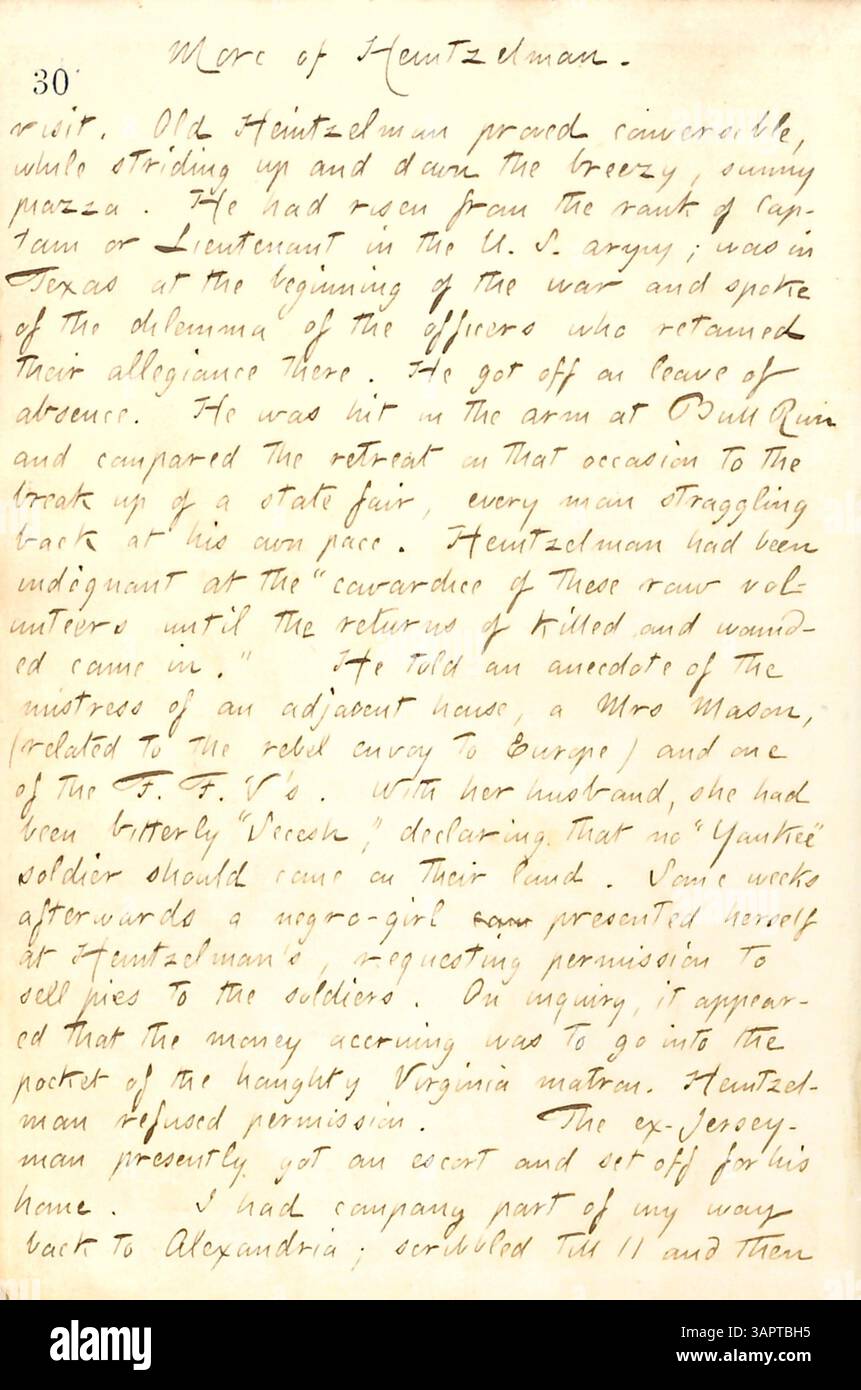 More of Heintzelman.
30
visit. Old Heintzelman proved conversible,
while striding up and down the breezy, sunny
piazza. He had risen from the rank of Cap-
tain or Lieutenant in the U. S. army; was in
Texas at the beginning of the war and spoke
of the dilemma of the officers who retained
their allegiance there. He got off on leave of
absence. He was hit in the arm at Bull Run
and compared the retreat on that occasion to the
break up of a state fair, every man straggling
back at his own pace. Heintzelman had been
indignant at the "cowardice of these raw vol-
unteers until the returns of killed and wound-
ed came in." He told an anecdote of the
mistress of an adjacent house, a Mrs Mason,
(related to the rebel envoy to Europe) and one
of the F. F. V's. With her husband, she had
been bitterly "Secesh," declaring that no "Yankee"
soldier should come on their land. Some weeks
afterwards a negro-girl presented herself
at Heintzelman's, requesting permission to
sell pies to the soldiers. On inquiry, it appear-
ed that the money accruing was to go into the
pocket of the haughty Virginia matron. Heintzel-
man refused permission. The ex-Jersey-
man presently got an escort and set off for his
home. I had company part of my way
back to Alexandria; scribbled till 11 and then
alamy
Image ID: 3APTBH5
www.alamy.com